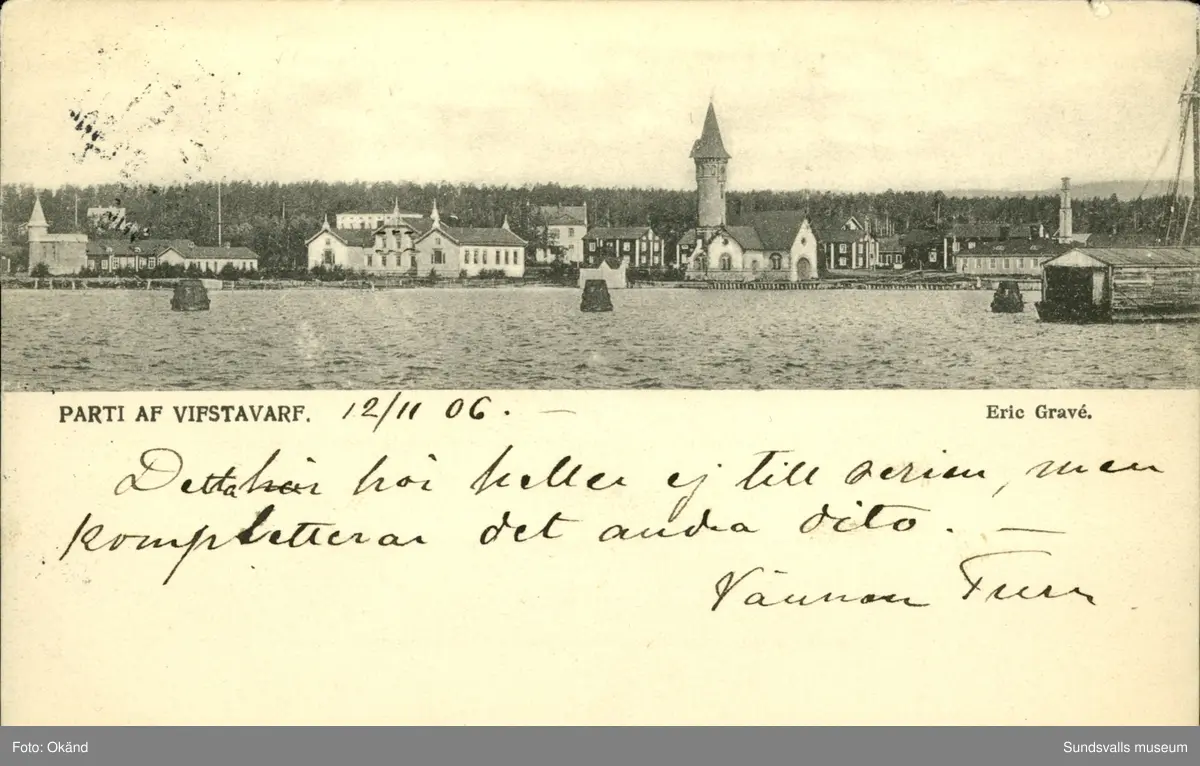 PARTI AF VIFSTAVARF. 12/11 06. —
Eric Gravé.
Detta här hör heller ej till serien, men
kompletterar det andra dito. —
Vännen
Foto: Okänd
Sundsvalls museum